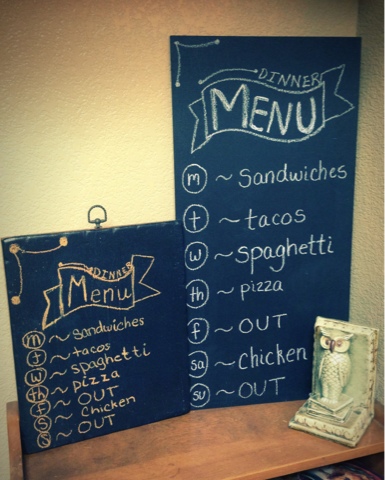 DINNER
MENU
m ~ sandwiches
t ~ tacos
w ~ spaghetti
th ~ pizza
f ~ OUT
sa ~ chicken
su ~ OUT
DINNER
Menu
m ~ sandwiches
t ~ tacos
w ~ spaghetti
th ~ pizza
f ~ OUT
s ~ chicken
s ~ OUT